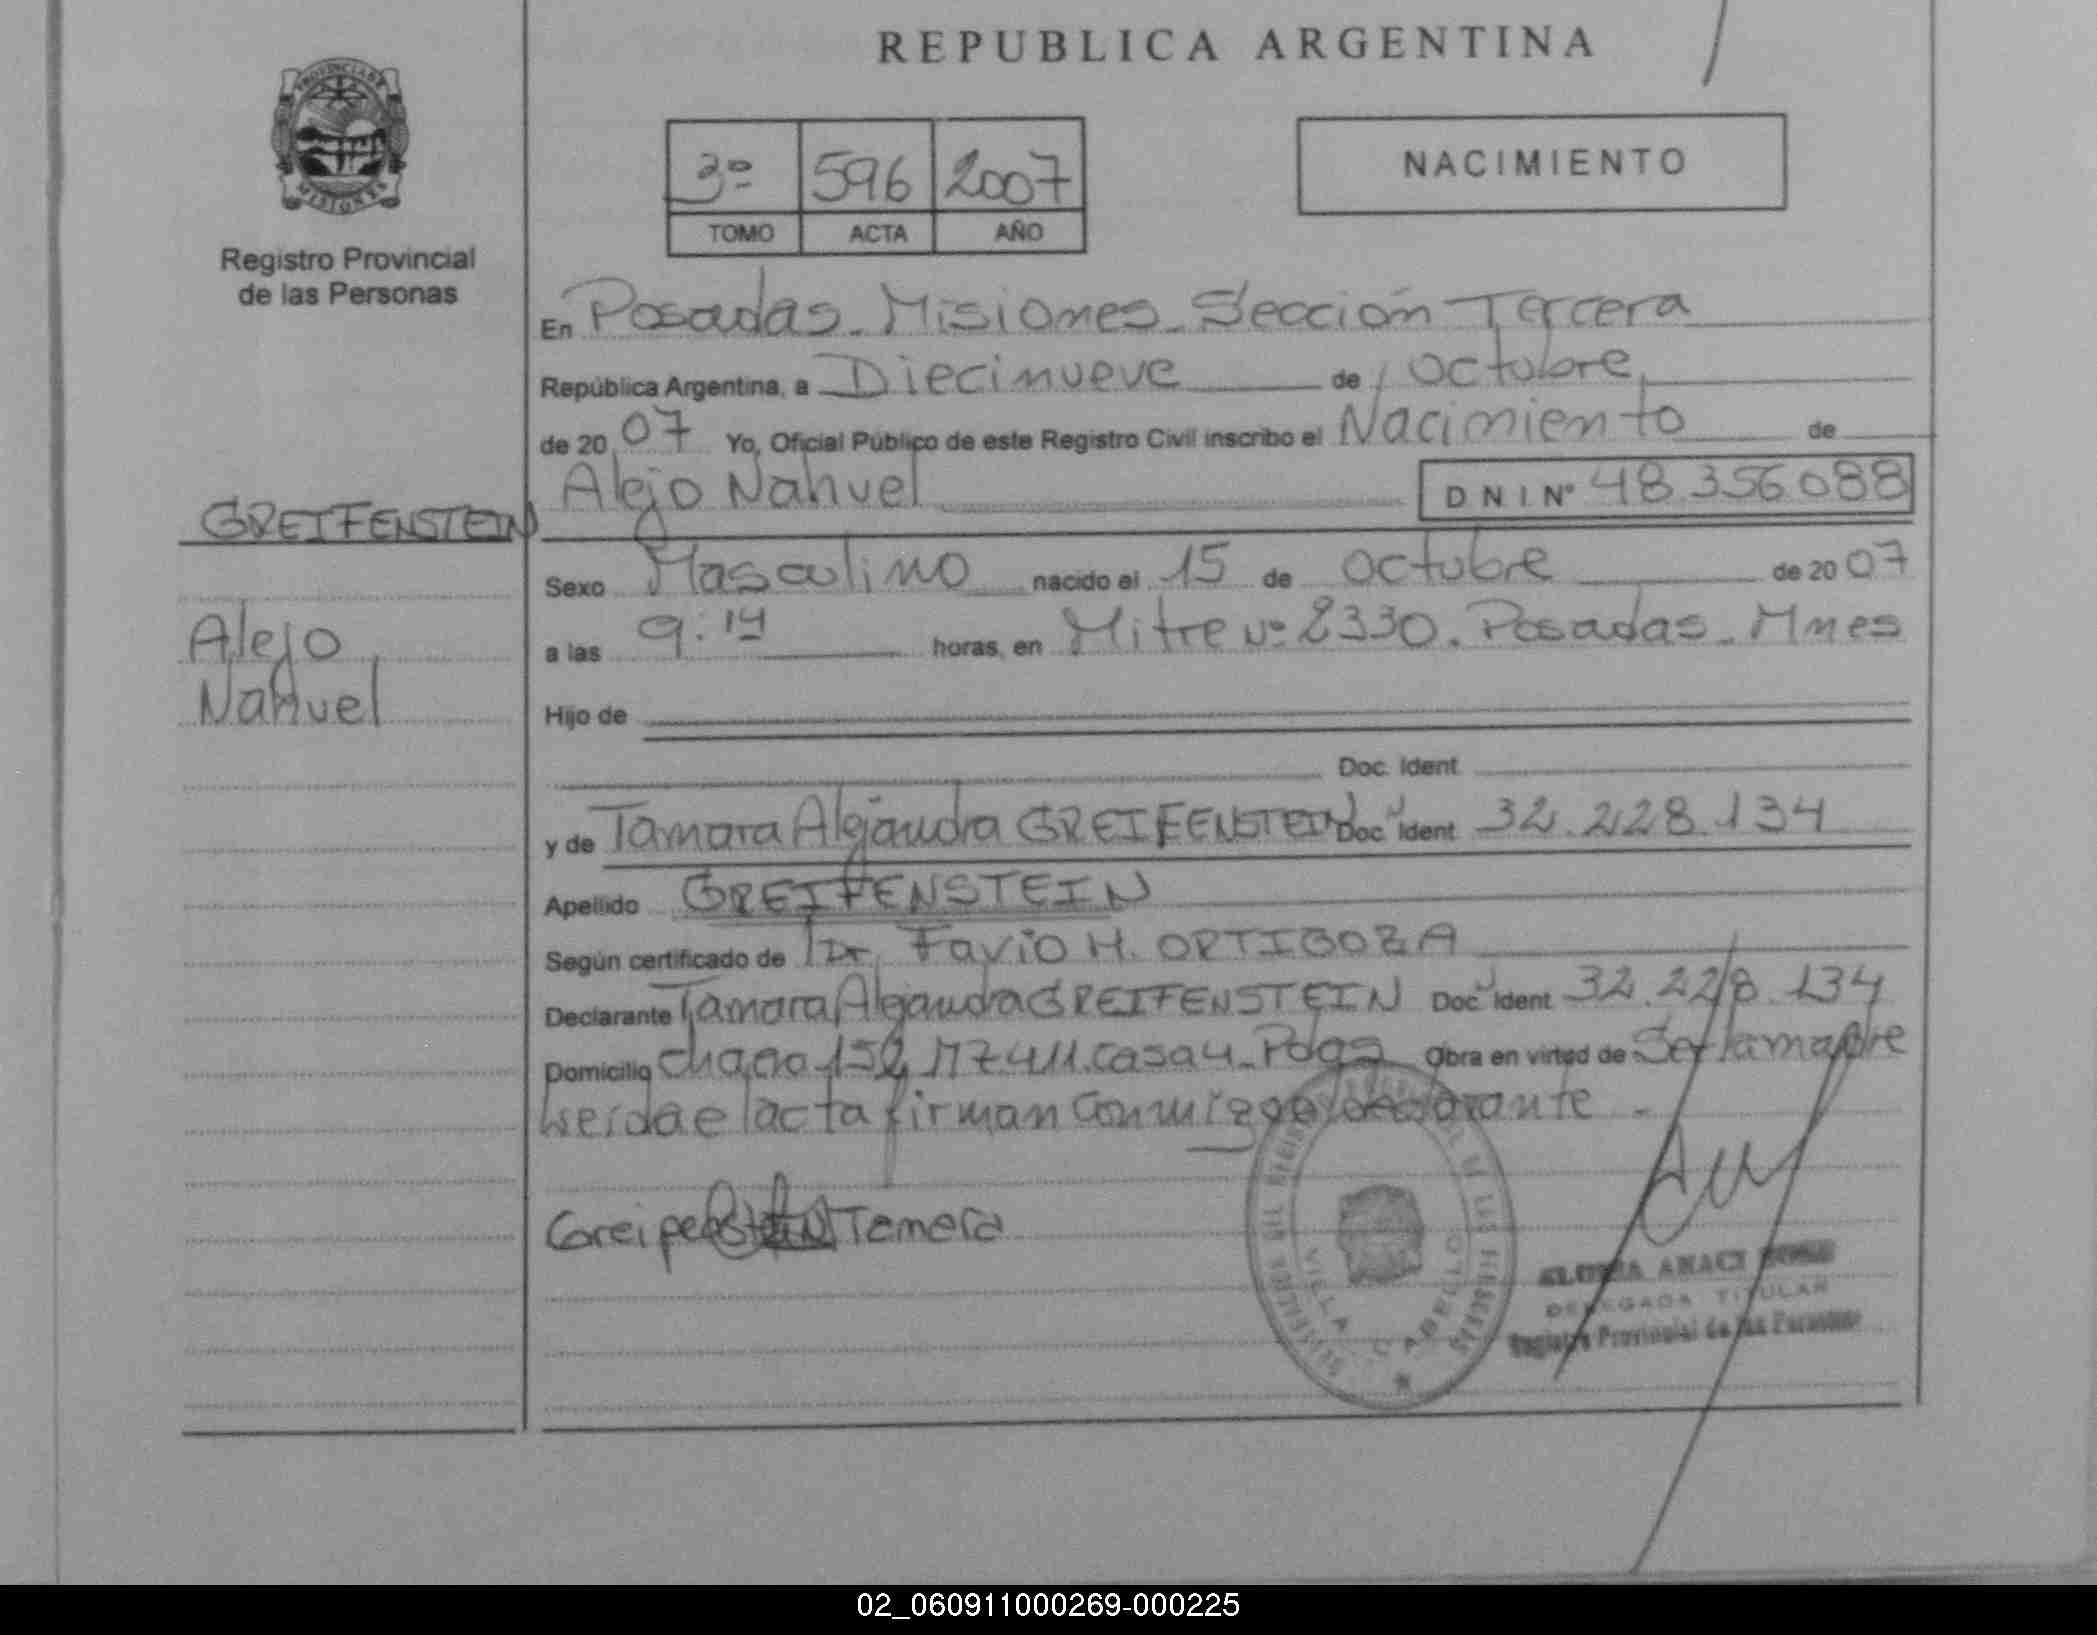 REPUBLICA ARGENTINA
PROVINCIA DE
MISIONES
Registro Provincial
de las Personas
3º 596 2007
TOMO ACTA AÑO
NACIMIENTO
En Posadas. Misiones. Sección Tercera
República Argentina, a Diecinueve de Octubre
de 2007 Yo, Oficial Público de este Registro Civil inscribo el Nacimiento de
Alejo Nahuel DNI Nº 48.356.088
GREIFENSTEIN
Alejo
Nahuel
Sexo Masculino nacido el 15 de Octubre de 2007
a las 9:14 horas, en Mitre Nº 2330. Posadas. Mnes
Hijo de
Doc. Ident
y de Tamara Alejandra GREIFENSTEIN Doc. Ident 32.228.134
Apellido GREIFENSTEIN
Según certificado de Dr. Favio H. ORTIGOZA
Declarante Tamara Alejandra GREIFENSTEIN Doc. Ident 32.228.134
Domicilio Chacra 152 Mz 411. casa 4. Pdas Obra en virtud de Ser la madre
Leida el acta firman conmigo el declarante
Tamara
VILLA CABELLO
DELEGADA TITULAR
Registro Provincial de las Personas
02_060911000269-000225